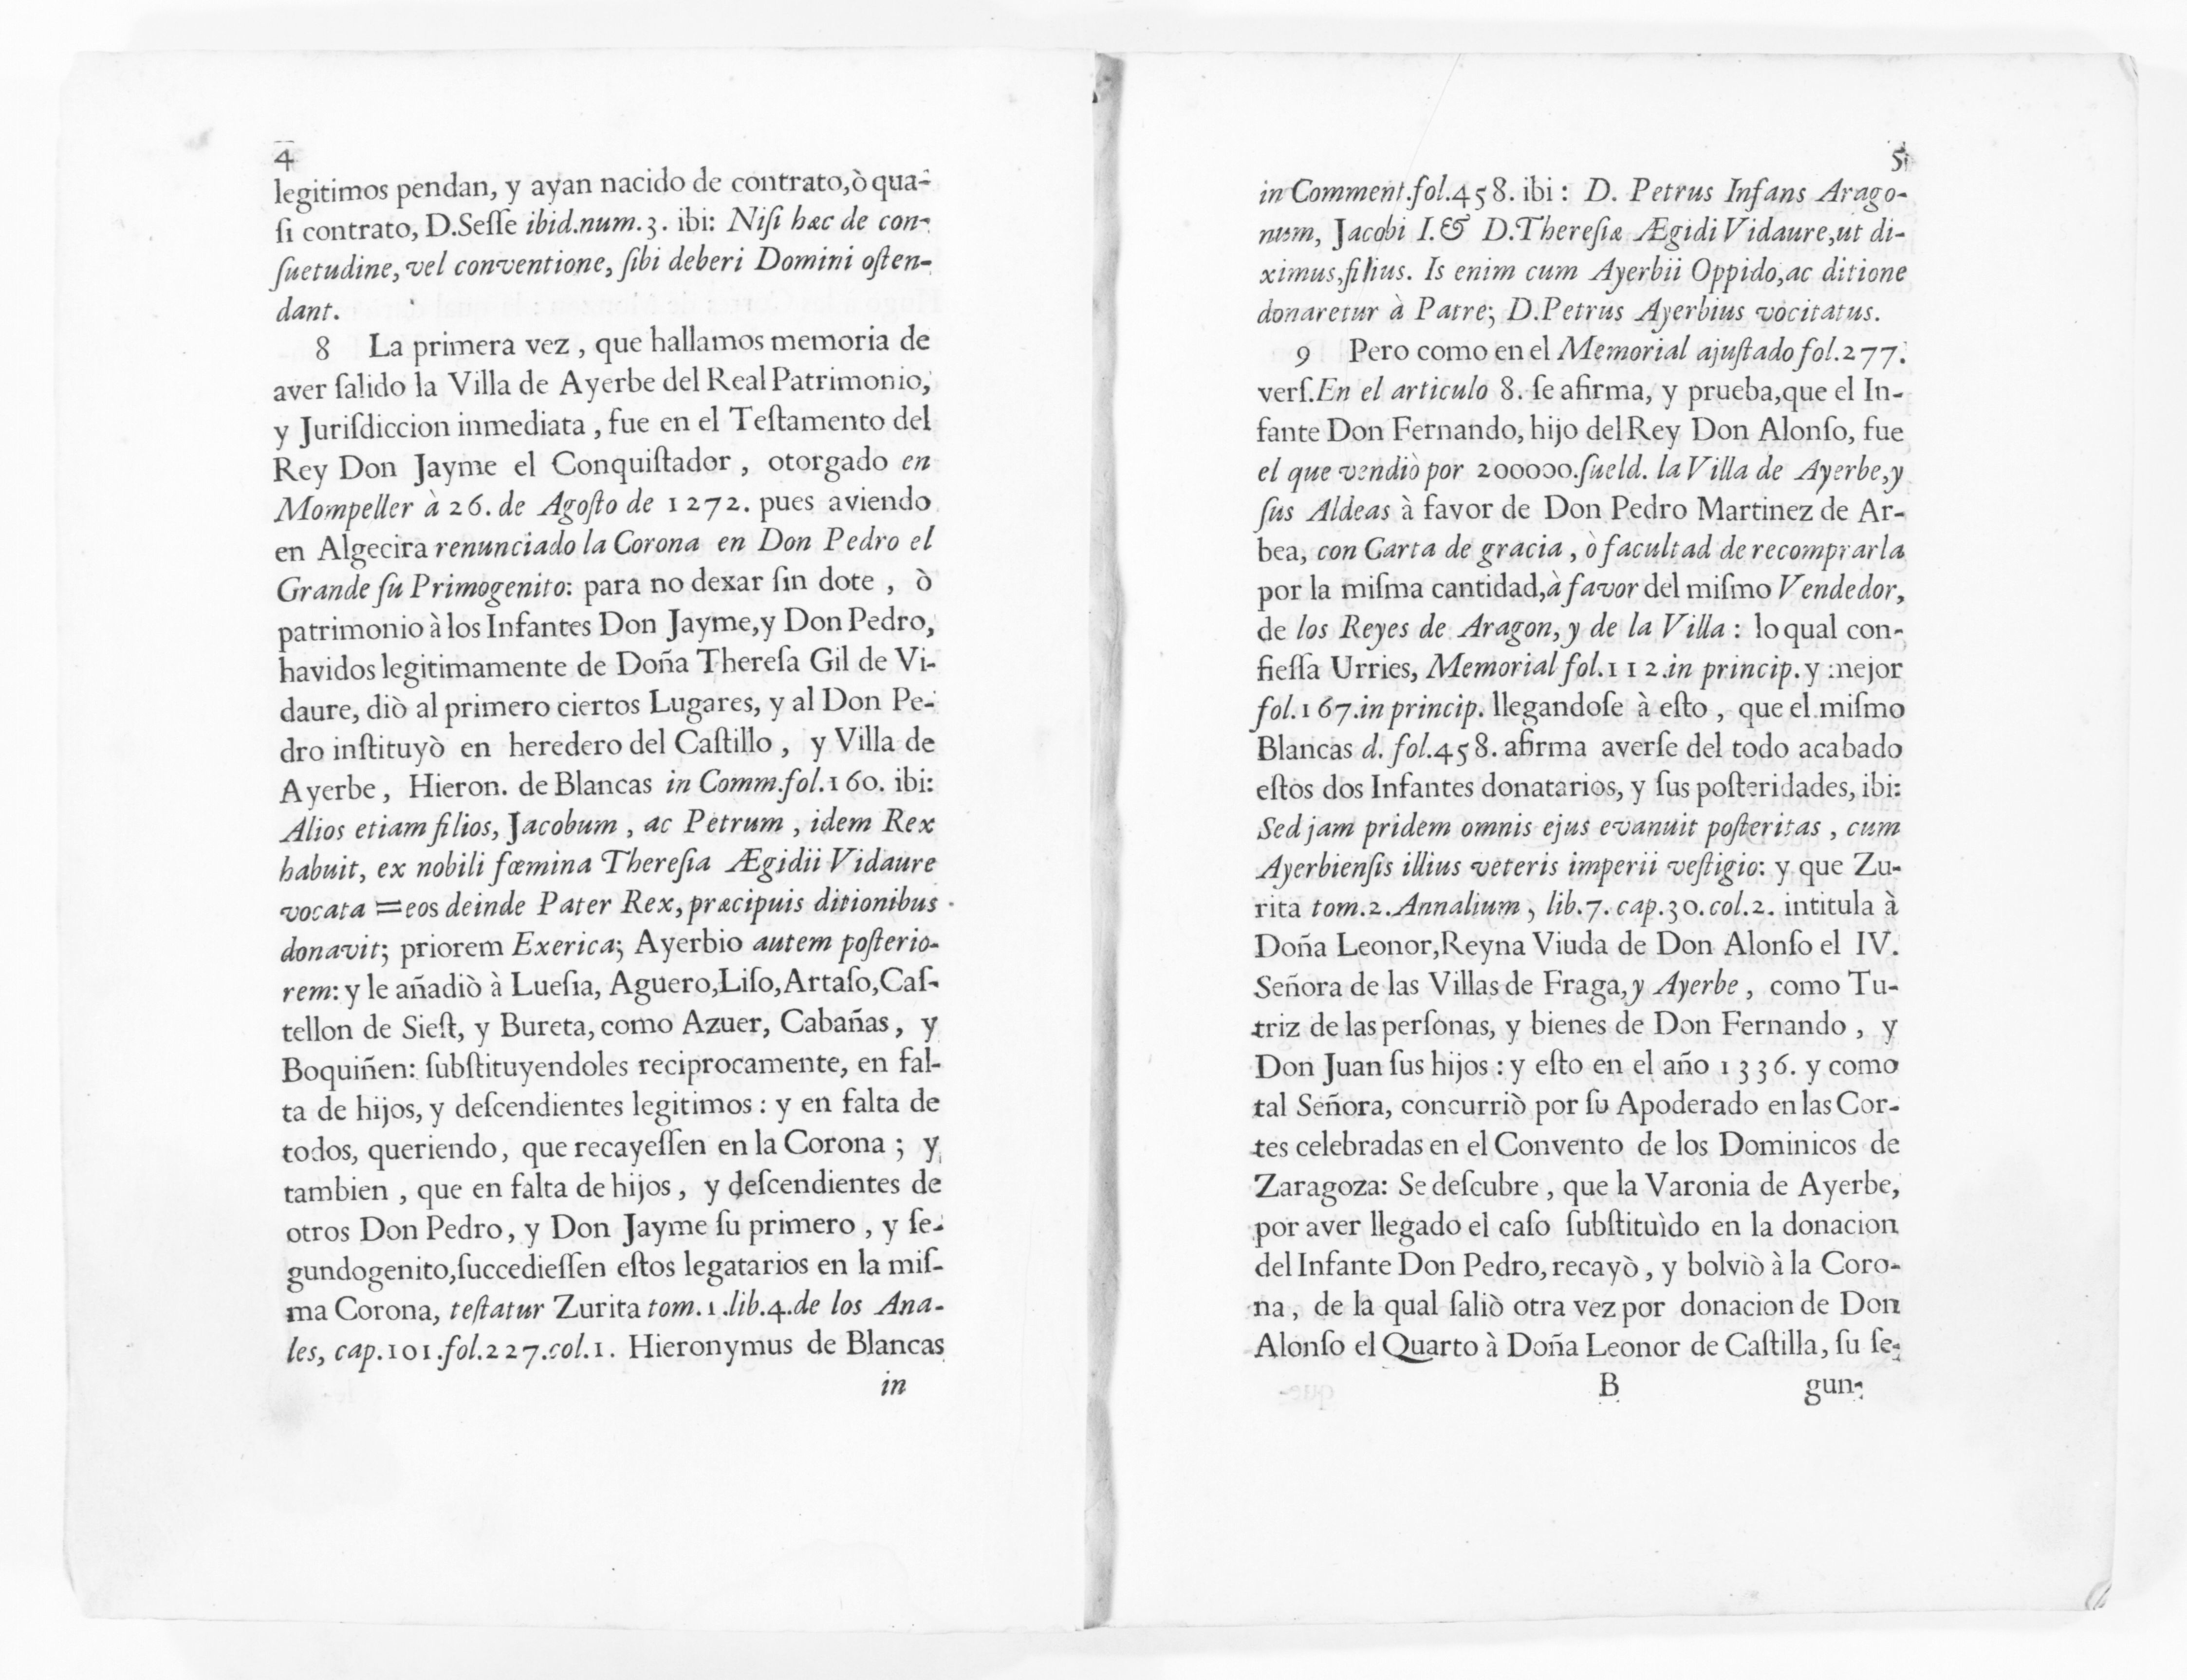 4
legitimos pendan, y ayan nacido de contrato,ò qua-
ſi contrato, D.Seſſe ibid.num.3. ibi: Niſi hæc de con-
ſuetudine, vel conventione, ſibi deberi Domini oſten-
dant.
8 La primera vez, que hallamos memoria de
aver ſalido la Villa de Ayerbe del Real Patrimonio,
y Juriſdiccion inmediata, fue en el Teſtamento del
Rey Don Jayme el Conquiſtador, otorgado en
Mompeller à 26. de Agoſto de 1272. pues aviendo
en Algecira renunciado la Corona en Don Pedro el
Grande ſu Primogenito: para no dexar ſin dote, ò
patrimonio à los Infantes Don Jayme,y Don Pedro,
havidos legitimamente de Doña Thereſa Gil de Vi-
daure, diò al primero ciertos Lugares, y al Don Pe-
dro inſtituyò en heredero del Caſtillo, y Villa de
Ayerbe, Hieron. de Blancas in Comm.fol.160. ibi:
Alios etiam filios, Jacobum, ac Petrum, idem Rex
habuit, ex nobili fœmina Thereſia Ægidii Vidaure
vocata =eos deinde Pater Rex, præcipuis ditionibus
donavit; priorem Exerica; Ayerbio autem poſterio-
rem: y le añadiò à Lueſia, Aguero,Liſo,Artaſo,Caſ-
tellon de Sieſt, y Bureta, como Azuer, Cabañas, y
Boquiñen: ſubſtituyendoles reciprocamente, en fal-
ta de hijos, y deſcendientes legitimos: y en falta de
todos, queriendo, que recayeſſen en la Corona; y
tambien, que en falta de hijos, y deſcendientes de
otros Don Pedro, y Don Jayme ſu primero, y ſe-
gundogenito,ſuccedieſſen eſtos legatarios en la miſ-
ma Corona, teſtatur Zurita tom.1.lib.4.de los Ana-
les, cap.101.fol.227.col.1. Hieronymus de Blancas
in
5
in Comment.fol.458. ibi: D. Petrus Infans Arago-
num, Jacobi I.& D.Thereſiæ Ægidi Vidaure,ut di-
ximus,filius. Is enim cum Ayerbii Oppido,ac ditione
donaretur à Patre; D.Petrus Ayerbius vocitatus.
9 Pero como en el Memorial ajuſtado fol.277.
verſ.En el articulo 8. ſe afirma, y prueba,que el In-
fante Don Fernando, hijo del Rey Don Alonſo, fue
el que vendiò por 200000.ſueld. la Villa de Ayerbe,y
ſus Aldeas à favor de Don Pedro Martinez de Ar-
bea, con Carta de gracia, ò facultad de recomprarla
por la miſma cantidad,à favor del miſmo Vendedor,
de los Reyes de Aragon, y de la Villa: lo qual con-
fieſſa Urries, Memorial fol.112.in princip. y mejor
fol.167.in princip. llegandoſe à eſto, que el miſmo
Blancas d. fol.458. afirma averſe del todo acabado
eſtos dos Infantes donatarios, y ſus poſteridades, ibi:
Sed jam pridem omnis ejus evanuit poſteritas, cum
Ayerbienſis illius veteris imperii veſtigio: y que Zu-
rita tom.2.Annalium, lib.7. cap.30.col.2. intitula à
Doña Leonor,Reyna Viuda de Don Alonſo el IV.
Señora de las Villas de Fraga,y Ayerbe, como Tu-
triz de las perſonas, y bienes de Don Fernando, y
Don Juan ſus hijos: y eſto en el año 1336. y como
tal Señora, concurriò por ſu Apoderado en las Cor-
tes celebradas en el Convento de los Dominicos de
Zaragoza: Se deſcubre, que la Varonia de Ayerbe,
por aver llegado el caſo ſubſtituìdo en la donacion
del Infante Don Pedro, recayò, y bolviò à la Coro-
na, de la qual ſaliò otra vez por donacion de Don
Alonſo el Quarto à Doña Leonor de Caſtilla, ſu ſe-
B gun-